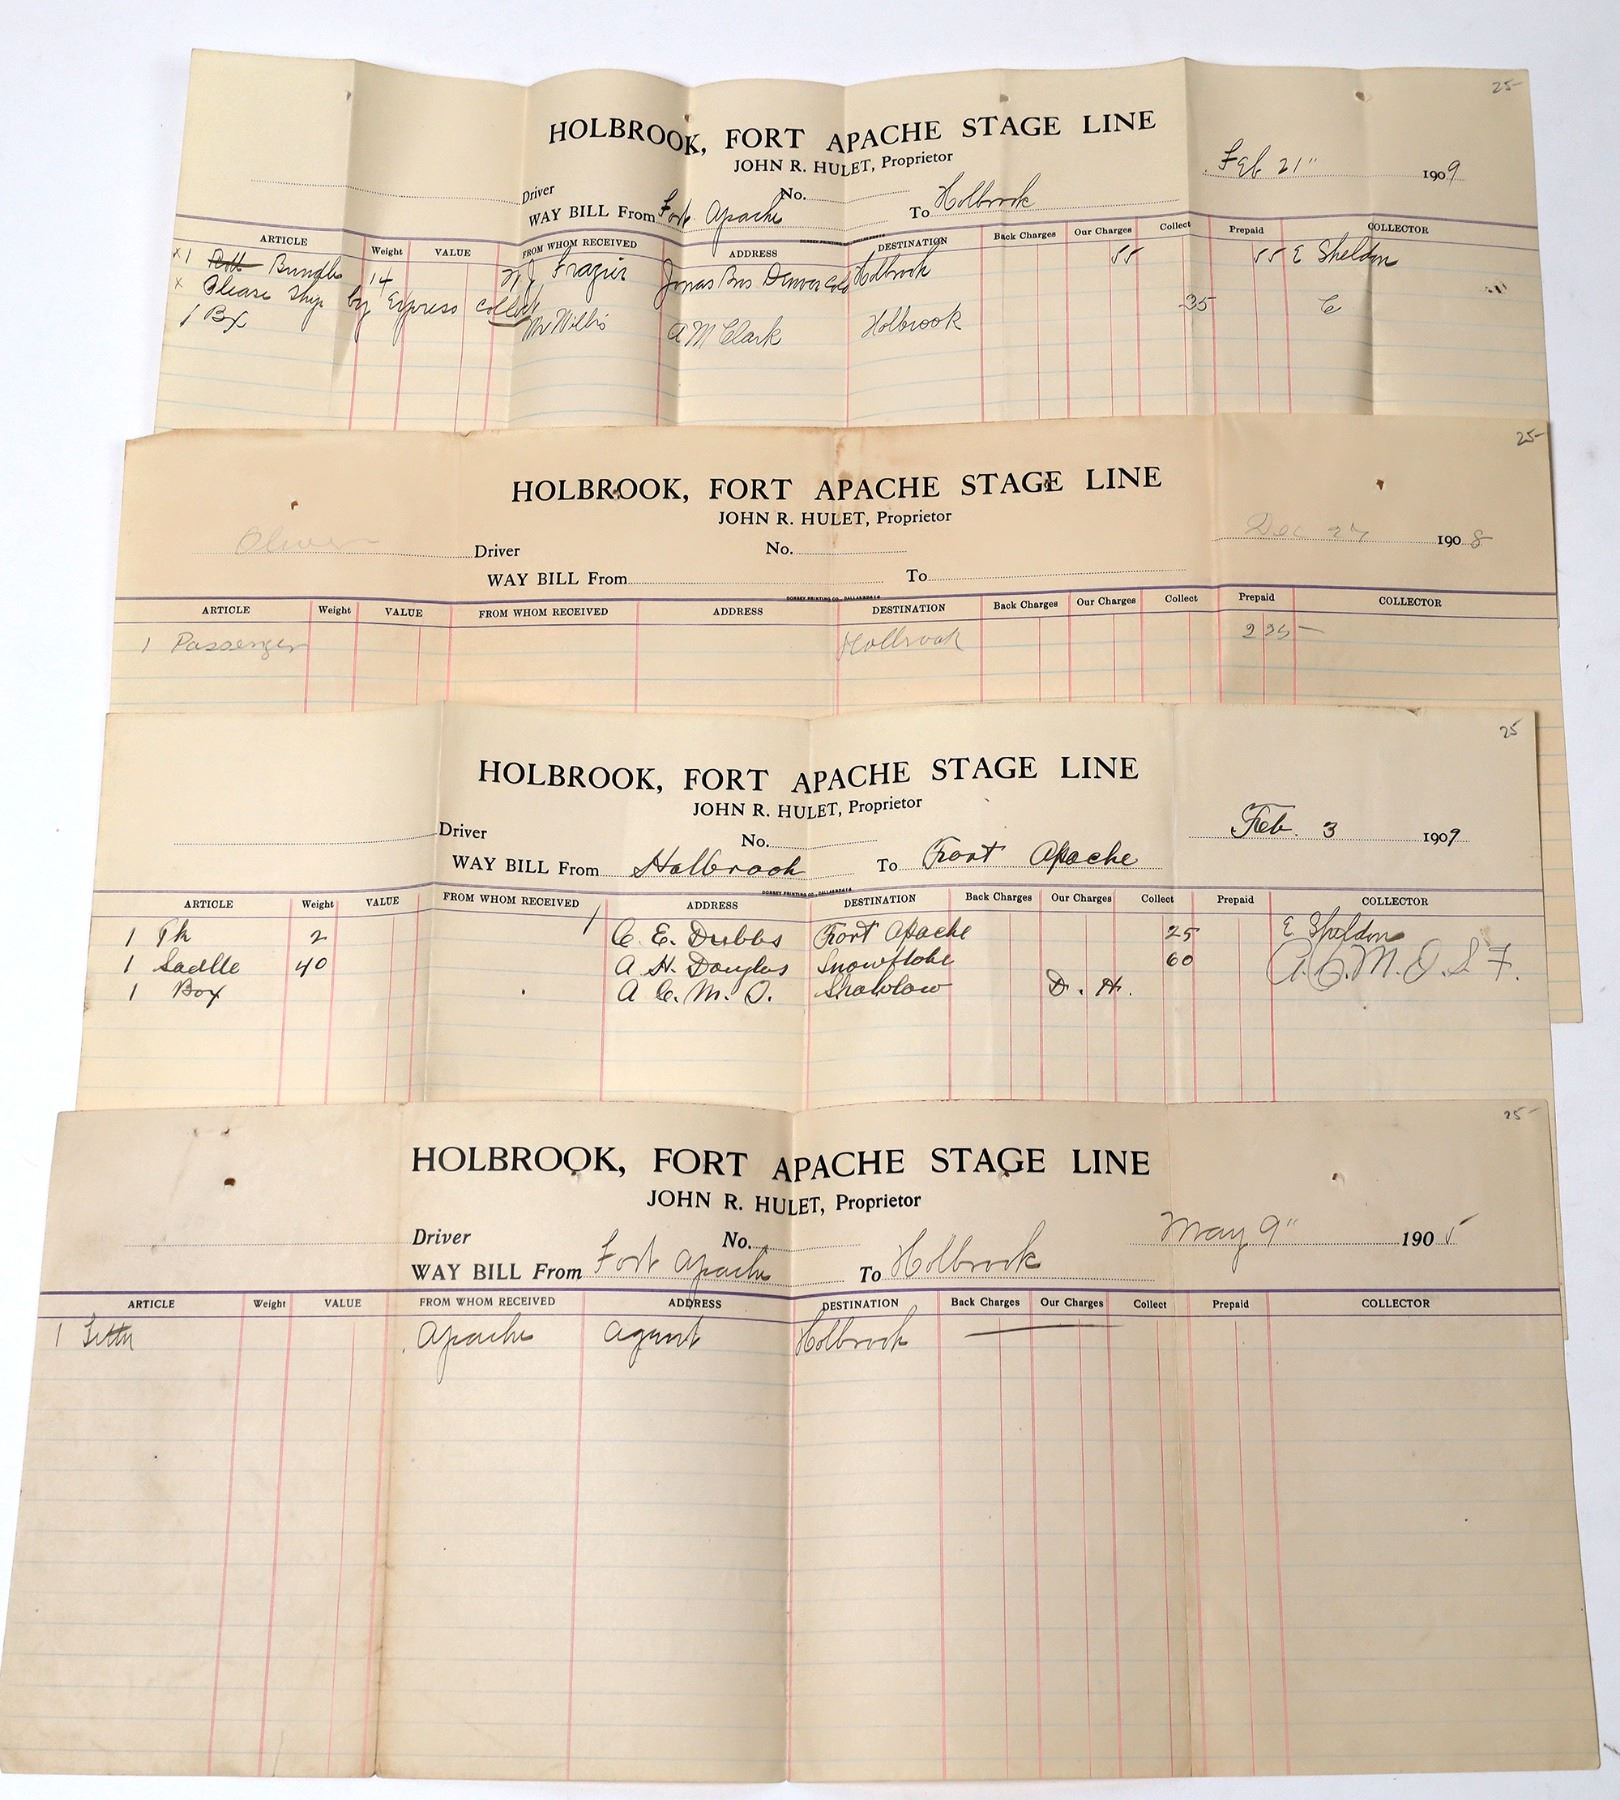 25-
HOLBROOK, FORT APACHE STAGE LINE
JOHN R. HULET, Proprietor
Feb 21" 1909
Driver No.
WAY BILL From Fort Apache To Holbrook
ARTICLE Weight VALUE FROM WHOM RECEIVED ADDRESS DESTINATION Back Charges Our Charges Collect Prepaid COLLECTOR
x 1 Bundle 14 Frazier Jonas Bros Denver Colo Holbrook 55 55 E Sheldon
x Please Ship by Express collect
1 Bx Mr Willis A M Clark Holbrook 35 C
25-
HOLBROOK, FORT APACHE STAGE LINE
JOHN R. HULET, Proprietor
Oliver Driver No. Dec 27 1908
WAY BILL From To
DORSEY PRINTING CO., DALLAS
ARTICLE Weight VALUE FROM WHOM RECEIVED ADDRESS DESTINATION Back Charges Our Charges Collect Prepaid COLLECTOR
1 Passenger Holbrook 2 25 -
25
HOLBROOK, FORT APACHE STAGE LINE
JOHN R. HULET, Proprietor
Driver No. Feb. 3 1909
WAY BILL From Holbrook To Fort Apache
DORSEY PRINTING CO., DALLAS
ARTICLE Weight VALUE FROM WHOM RECEIVED ADDRESS DESTINATION Back Charges Our Charges Collect Prepaid COLLECTOR
1 Pk 2 C. E. Dubbs Fort Apache 25 E Sheldon
1 Sadlle 40 A. H. Douglas Snowflake 60 A. C. M. O. S F.
1 Box A. C. M. O. Showlow D. H.
25-
HOLBROOK, FORT APACHE STAGE LINE
JOHN R. HULET, Proprietor
Driver No. May 9" 1905
WAY BILL From Fort Apache To Holbrook
ARTICLE Weight VALUE FROM WHOM RECEIVED ADDRESS DESTINATION Back Charges Our Charges Collect Prepaid COLLECTOR
1 Letter Apache Agent Holbrook